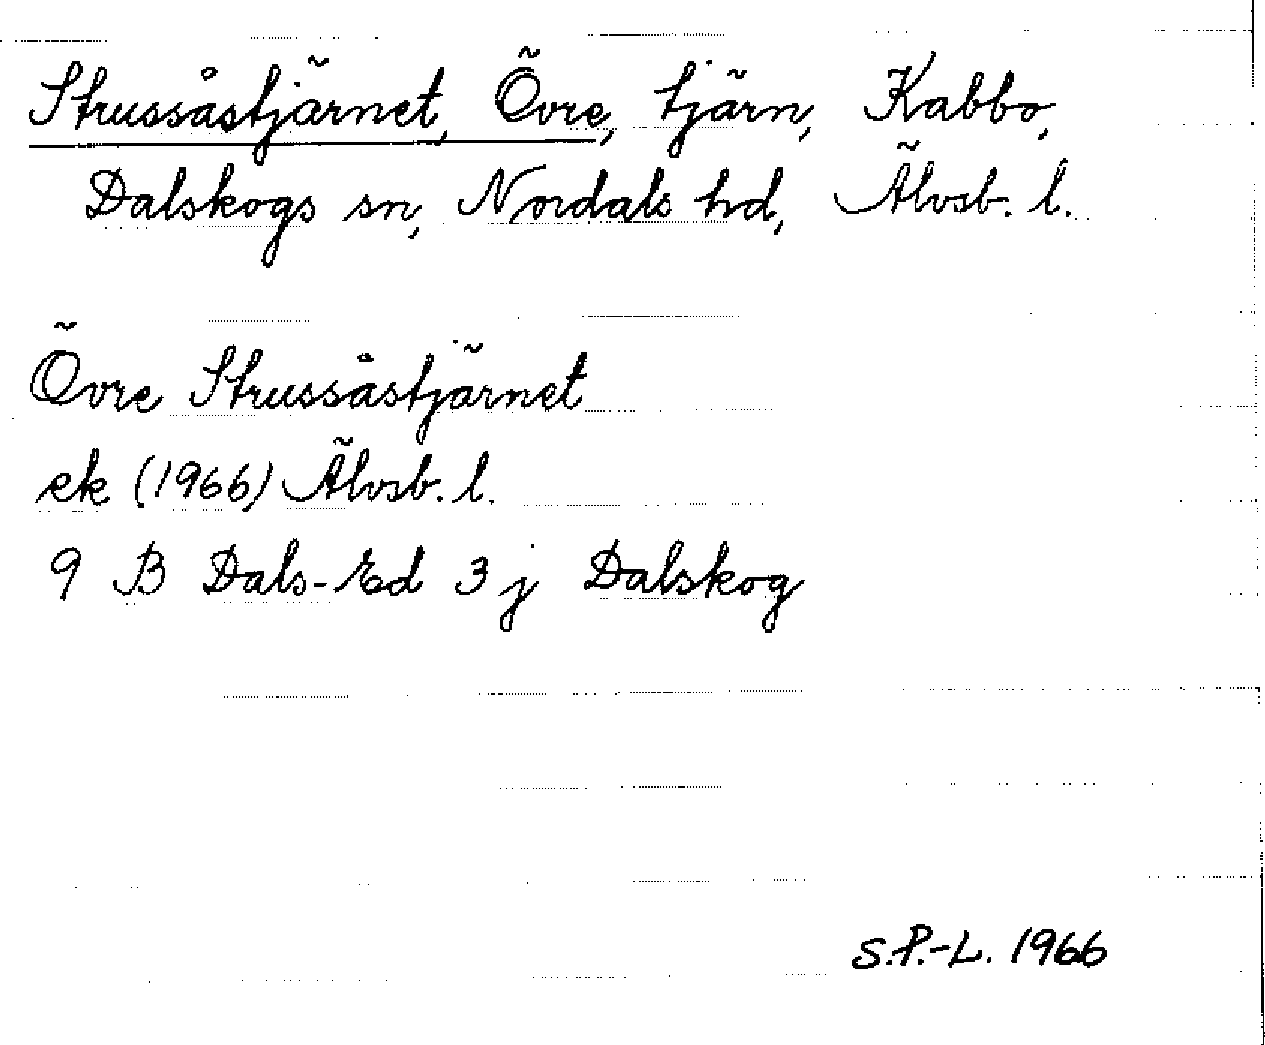 Strussåstjärnet, Övre, tjärn, Kabbo,
Dalskogs sn, Nordals hd, Älvsb. l.
Övre Strussåstjärnet
ek (1966) Älvsb. l.
9 B Dals-Ed 3 j Dalskog
S.P.-L. 1966